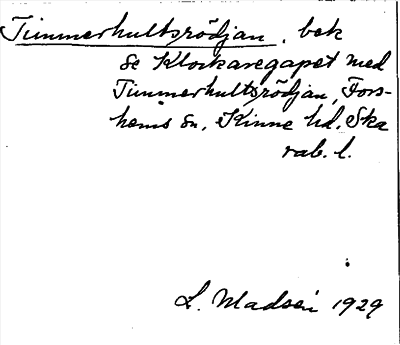 Timmerhultsrödjan, bek
Se Klockaregapet med
Timmerhultsrödjan, Fors-
hems sn, Kinne hd, Ska
rab. l.
L. Madsen 1929